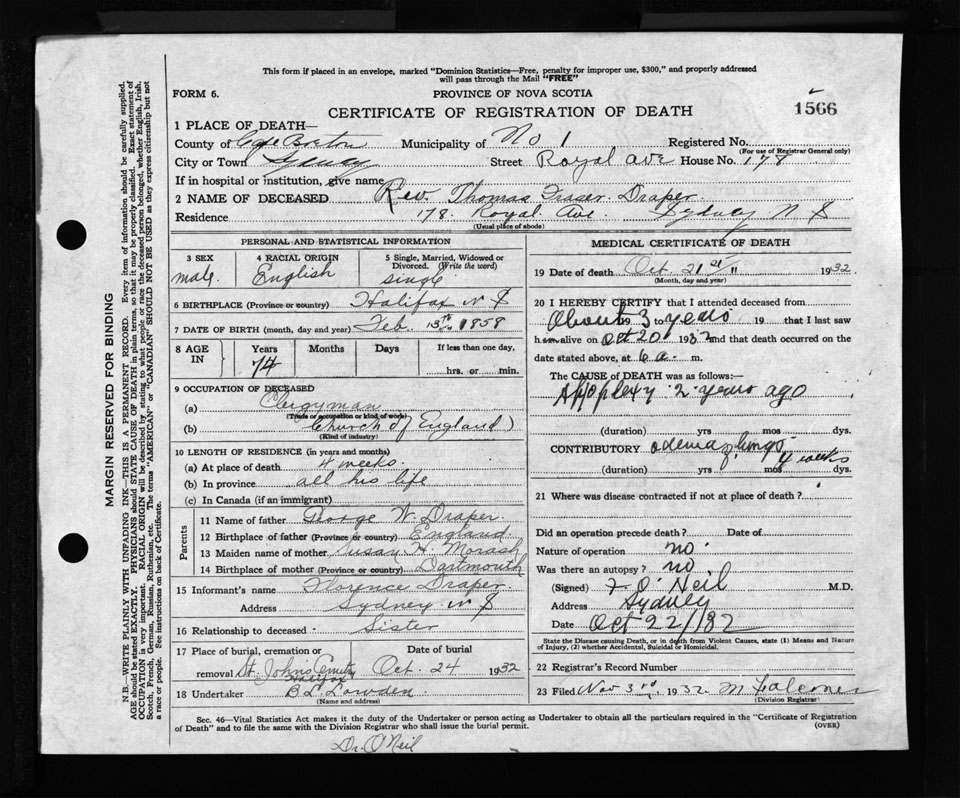 This form if placed in an envelope, marked "Dominion Statistics—Free, penalty for improper use, $300," and properly addressed
will pass through the Mail "FREE"
FORM 6.
PROVINCE OF NOVA SCOTIA
CERTIFICATE OF REGISTRATION OF DEATH
1566
1 PLACE OF DEATH—
County of Cape Breton Municipality of No 1 Registered No.
(For use of Registrar General only)
City or Town Sydney Street Royal Ave House No. 178
If in hospital or institution, give name
2 NAME OF DECEASED Rev. Thomas Fraser Draper
Residence 178 Royal Ave. Sydney N S
(Usual place of abode)
PERSONAL AND STATISTICAL INFORMATION
3 SEX
male.
4 RACIAL ORIGIN
English
5 Single, Married, Widowed or
Divorced. (Write the word)
single
6 BIRTHPLACE (Province or country) Halifax N S
7 DATE OF BIRTH (month, day and year) Feb. 13th 1858
8 AGE
IN
Years
74
Months
Days
If less than one day,
hrs. or min.
9 OCCUPATION OF DECEASED
(a) Clergyman
(Trade or occupation or kind of work)
(b) Church of England)
(Kind of industry)
10 LENGTH OF RESIDENCE (in years and months)
(a) At place of death 4 weeks.
(b) In province all his life
(c) In Canada (if an immigrant)
Parents
11 Name of father George W. Draper
12 Birthplace of father (Province or country) England.
13 Maiden name of mother Susan H. Morash
14 Birthplace of mother (Province or country) Dartmouth
15 Informant's name Florence Draper
Address Sydney N S
16 Relationship to deceased Sister
17 Place of burial, cremation or
removal
Date of burial
St. Johns Cemetry Oct. 24 1932
Halifax
18 Undertaker Lowden
(Name and address)
MEDICAL CERTIFICATE OF DEATH
19 Date of death Oct. 21 21st/11 1932
(Month, day and year)
20 I HEREBY CERTIFY that I attended deceased from
About 3 years 19 that I last saw
him alive on Oct 20 1932 and that death occurred on the
date stated above, at 6 a. m.
The CAUSE of DEATH was as follows:
Appoplexy 2 years ago
(duration) yrs mos dys.
CONTRIBUTORY odema of lungs
4 weeks
(duration) yrs mos dys.
21 Where was disease contracted if not at place of death?
Did an operation precede death? Date of
Nature of operation no.
Was there an autopsy? no.
(Signed) F O'Neil M.D.
Address Sydney
Date Oct 22/32
State the Disease causing Death, or in death from Violent Causes, state (1) Means and Nature
of Injury, (2) whether Accidental, Suicidal or Homicidal.
22 Registrar's Record Number
23 Filed Nov 3rd 1932 M Falconer
(Division Registrar)
Sec. 46—Vital Statistics Act makes it the duty of the Undertaker or person acting as Undertaker to obtain all the particulars required in the "Certificate of Registration
of Death" and to file the same with the Division Registrar who shall issue the burial permit.
(OVER)
Dr. O'Neil
MARGIN RESERVED FOR BINDING
N.B.—WRITE PLAINLY WITH UNFADING INK—THIS IS A PERMANENT RECORD. Every item of information should be carefully supplied.
AGE should be stated EXACTLY. PHYSICIANS should STATE CAUSE OF DEATH in plain terms, so that it may be properly classified. Exact statement of
OCCUPATION is very important. RACIAL ORIGIN will be described by stating to what people or race the deceased person belonged, whether English, Irish,
Scotch, French, German, Russian, Ruthenian, etc. The terms "AMERICAN" or "CANADIAN" SHOULD NOT BE USED as they express citizenship but not
a race or people. See instructions on back of Certificate.